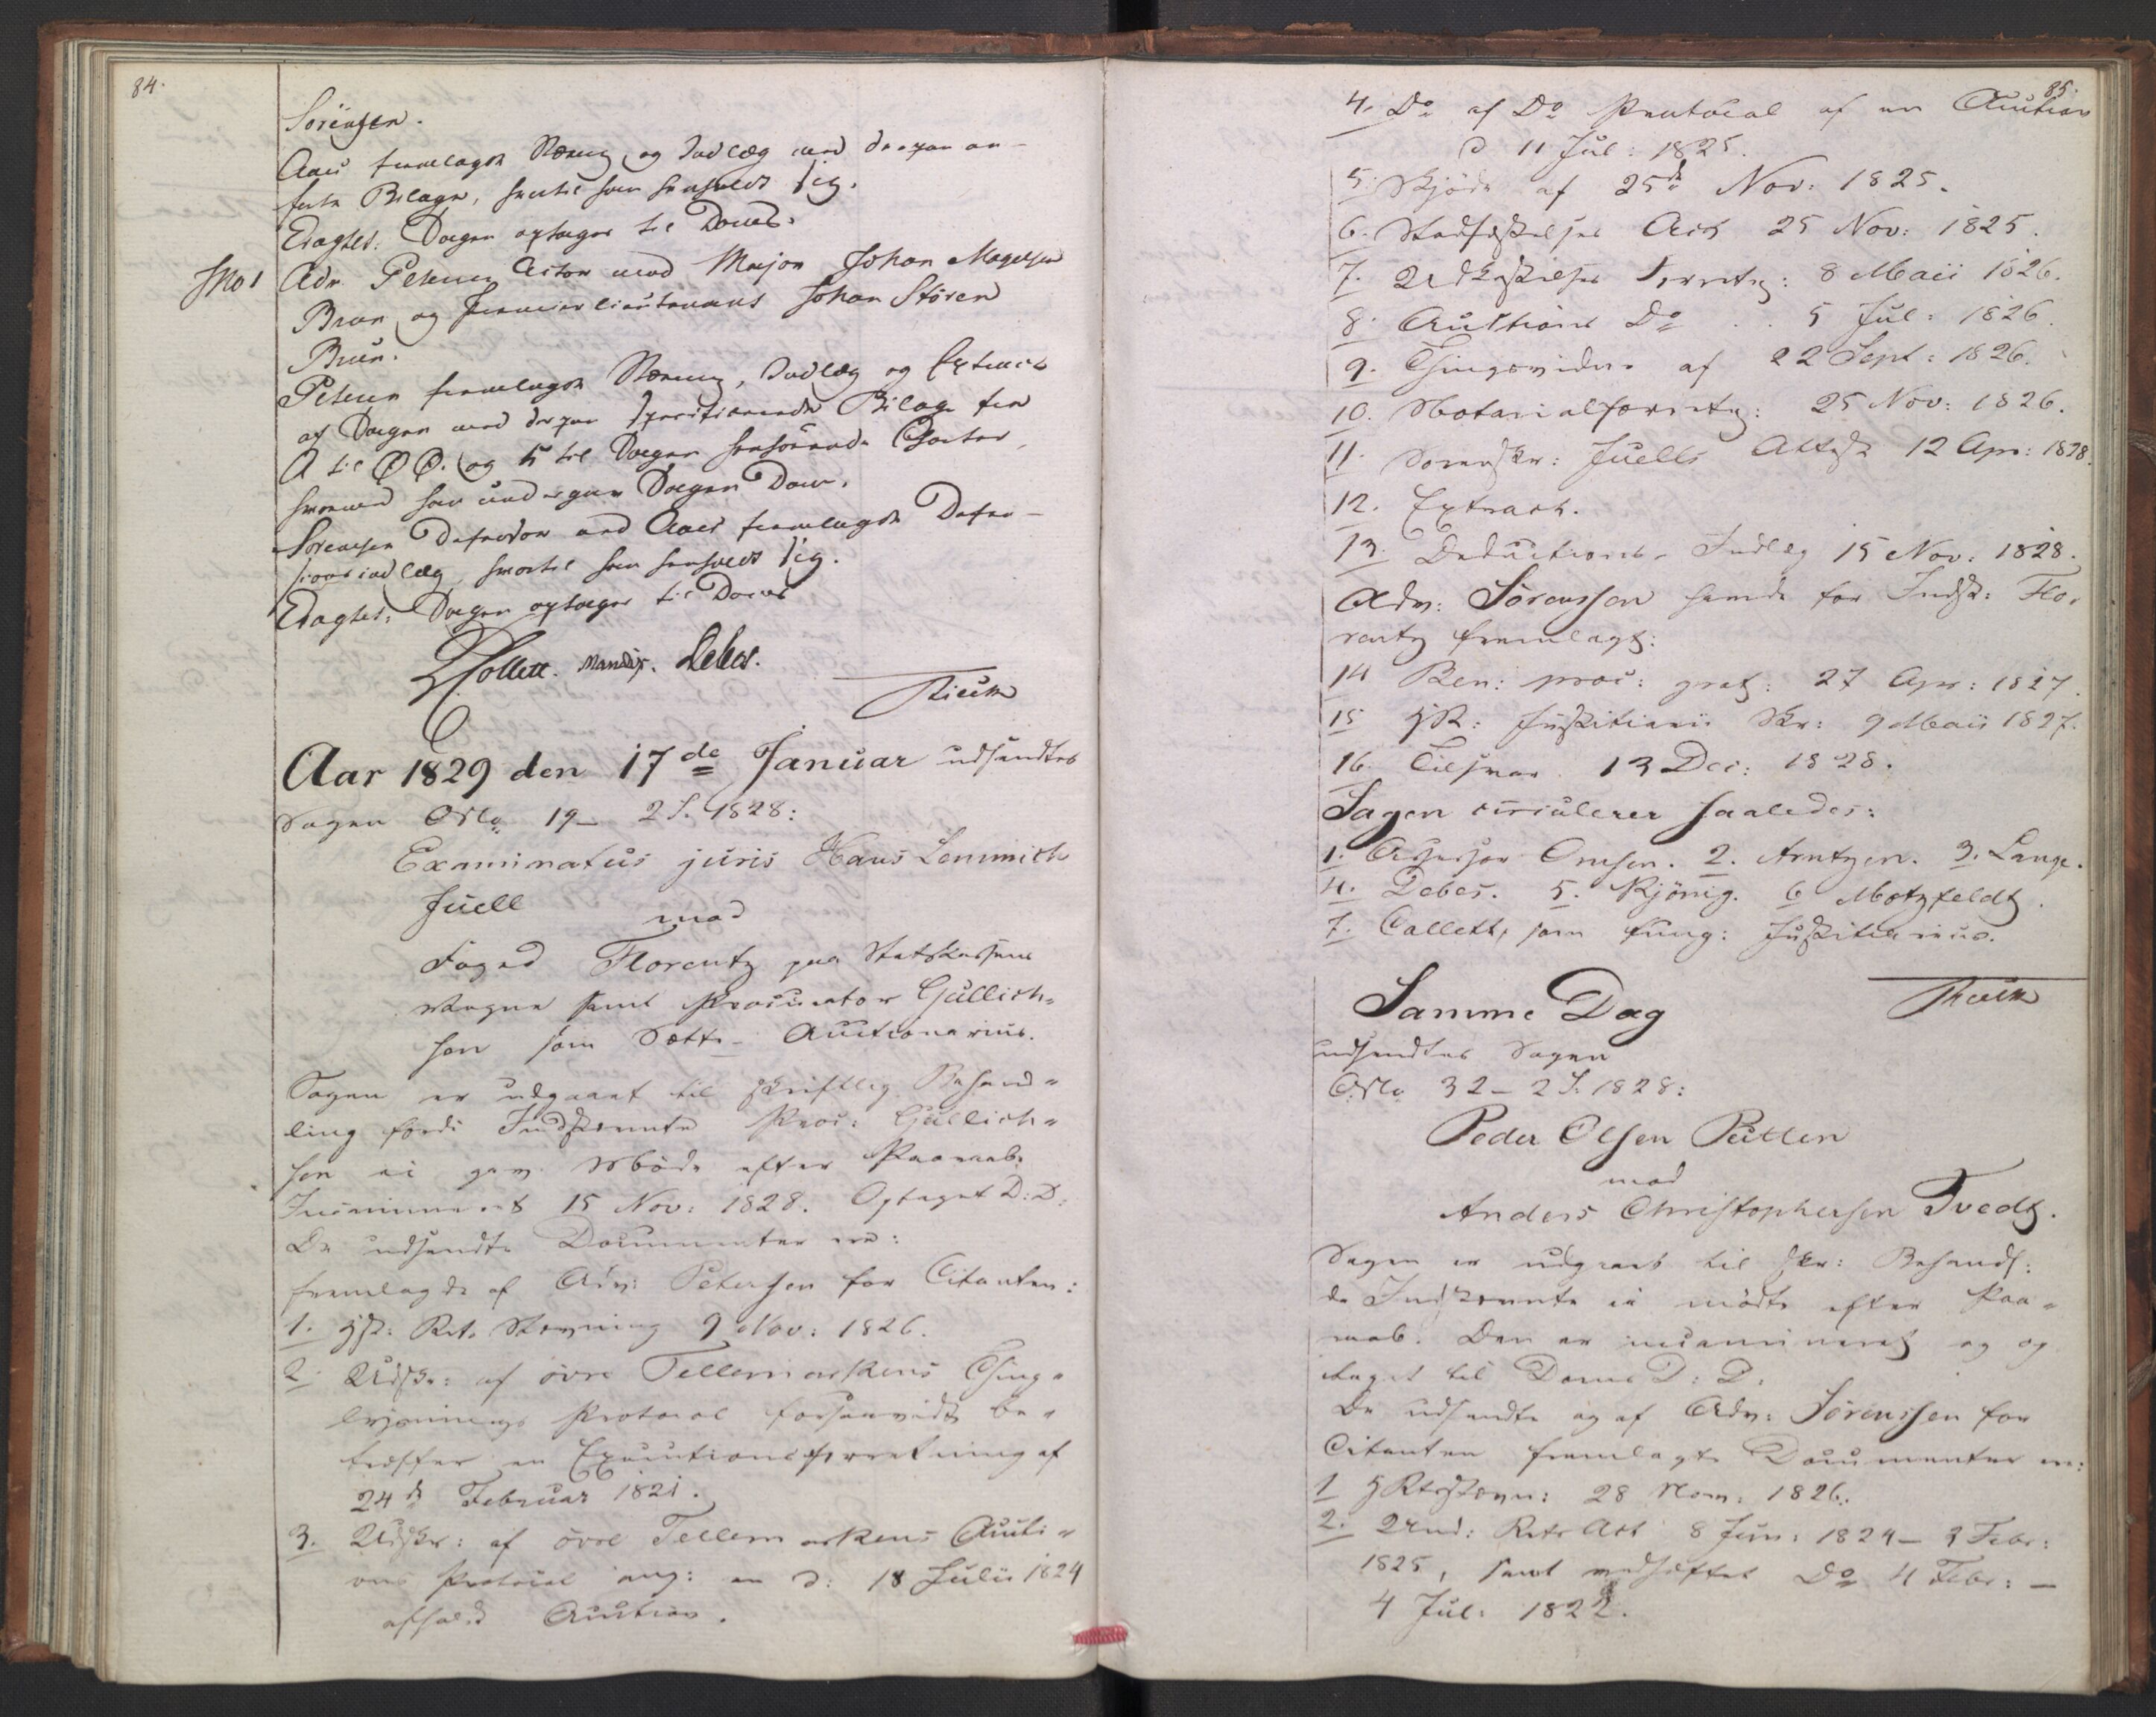 84.
Sörensen.
Aars fremlagde Stævng og Indlæg med derpaa an-
førte Bilage, hvortil han henholdt sig.
Eragtet: Sagen optages til Doms.
No 1 Adv. Petersen Actor mod Major Johan Magelsen
Brun og Premierlieutenant Johan Stören
Brun.
Petersen fremlagde Stævning, Indlæg og Extract
af Sagen med derpaa specificerende Bilage fra
A til Ø Ø. og 5 til Sagen henhörende Charter,
hvorved han undergav Sagen Dom.
Sörensen Defensor med Aars fremlagde Defen-
sionsindlæg, hvortil han henholdt sig.
Eragtet: Sagen optages til Doms
Collett. Mandix. Debes.
Rieck
Aar 1829 den 17de Januar udsendtes
Sagen No 19 - 2 S. 1828:
Examinatus juris Hans Lemmich
Juell
mod
Foged Florentz paa Statskassens
Vegne samt Procurator Gullich-
sen som Sætte-Auctionarius.
Sagen er udgaaet til skriftlig Behand-
ling fordi Indstevnte Proc: Gullich-
sen ei gav Möde efter Paaraab.
Incamineret 15 Nov: 1828. Optaget D: D:
De udsendte Documenter ere:
fremlagde af Adv: Petersen for Citanten:
1. HöR: Rets Stevning 9 Nov: 1826.
2. Udskr: af övre Tellemarkens Thing-
lysnings Protocol forsaavidt be-
træffer en Executionsforretning af
24de Februar 1821.
3. Udskr: af övre Tellemarkens Aucti-
ons Protocol ang: en d: 18 Julii 1824
afholdt Auction.
85.
4. Do af Do Protocol af en Auction
d 11 Jul: 1825.
5. Skjöde af 25de Nov: 1825.
6. Stadfæstelses Act 25 Nov: 1825.
7. Udkastelses Forretng: 8 Maii 1826.
8. Auctions Do . . 5 Jul: 1826.
9. Thingsvidne af 22 Sept: 1826.
10. Notarialforretng: 25 Nov: 1826.
11. Sorenskr: Juells Attest 12 Apr: 1828.
12. Extract.
13. Deductions-Indlæg 15 Nov: 1828.
Adv: Sörenssen havde for Indst: Flo-
rentz fremlagt:
14 Ben: proc: grat: 27 Apr: 1827.
15 HR: Justitiarii Skr: 9 Maii 1827.
16. Tilsvar 13 Dec: 1828.
Sagen circulerer saaledes:
1. Assessor Omsen. 2. Arntzen. 3. Lange.
4. Debes. 5. Kjönig. 6 Motzfeldt.
7. Collett, som fung: Justitiarius.
Rieck
Samme Dag
udsendtes Sagen
No 32 - 2 S. 1828:
Peder Olsen Putten
mod
Anders Christophersen Tvedt.
Sagen er udgaaet til skr: Behandl:
da Indstevnte ei mödte efter Paa-
raab. Den er incamineret og op
taget til Doms D: D:
De udsendte og af Adv: Sörenssen for
Citanten fremlagte Documenter ere:
1 HRetsstevn: 28 Nov: 1826.
2. Und: Rets Act 8 Jun: 1824 - 3 Febr:
1825, samt vedhæftet Do 4 Febr: -
4 Jul: 1822.